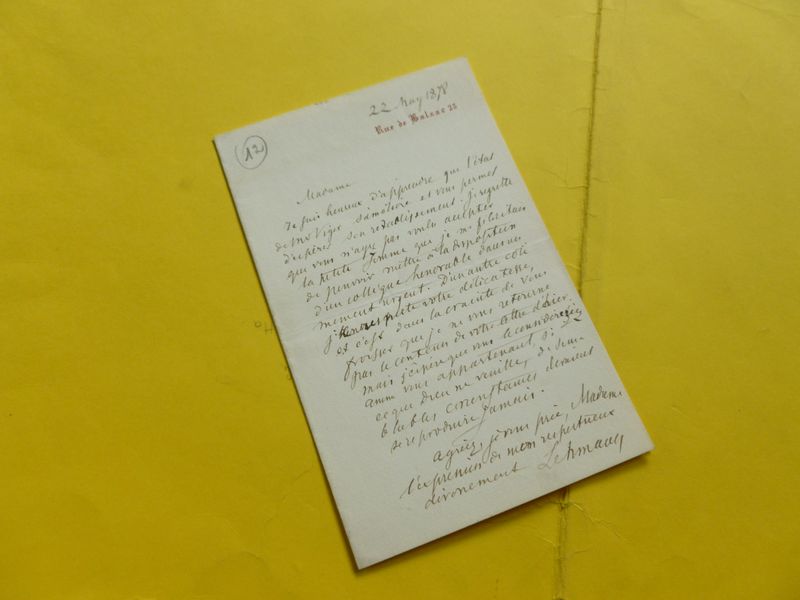 12
22 May 1878
Rue de Balzac 25
Madame
Je suis heureux d'apprendre que l'état
de Mr Viger s'améliore et vous permet
d'espérer son rétablissement. Je regrette
que vous n'ayez pas voulu accepter
la petite somme que je me félicitais
de pouvoir mettre à la disposition
d'un collègue honorable dans un
moment urgent. D'un autre côté
je respecte votre délicatesse,
et c'est dans la crainte de vous
froisser que je ne vous retourne
pas le contenu de votre lettre d'hier.
mais j'espère que vous le considérerez
comme vous appartenant, si
ce que Dieu ne veuille, de sem
blables circonstances devaient
se reproduire jamais.
agréez, je vous prie, Madame
l'expression de mon respectueux
dévouement Lehmann